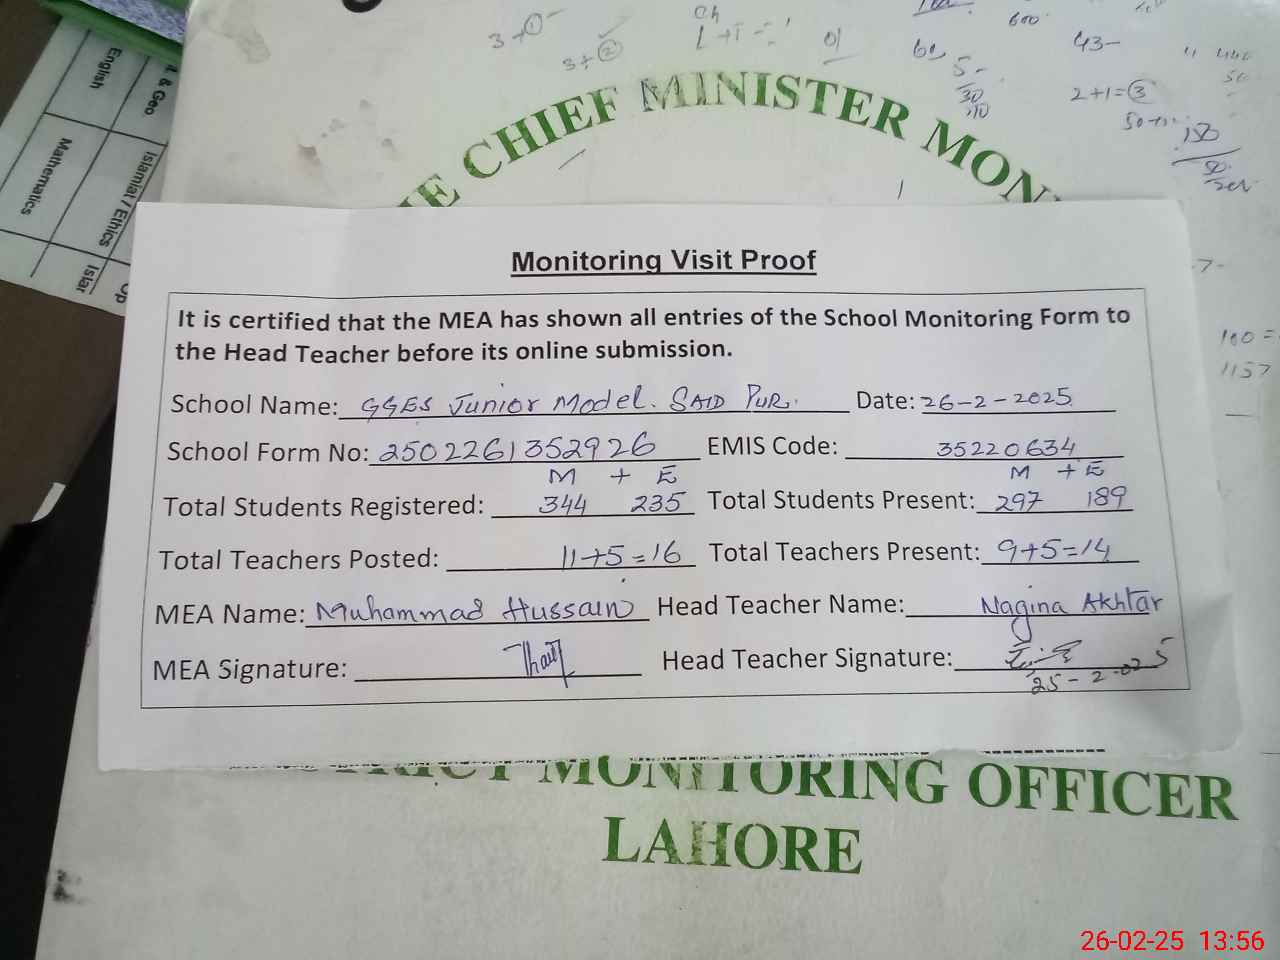 3+①
3+②
Ch
01
600
43-
2+1=③
5-
30
THE CHIEF MINISTER MONI
English
& Geo
Mathematics
Islamiat / Ethics
Islar
Monitoring Visit Proof
It is certified that the MEA has shown all entries of the School Monitoring Form to
the Head Teacher before its online submission.
School Name: GGES Junior Model. SAID PUR. Date: 26-2-2025
School Form No: 2502261352926 EMIS Code: 35220634
M + E M + E
Total Students Registered: 344 235 Total Students Present: 297 189
Total Teachers Posted: 11+5=16 Total Teachers Present: 9+5=14
MEA Name: Muhammad Hussain Head Teacher Name: Nagina Akhtar
MEA Signature: Head Teacher Signature:
25-2-025
100=
1157
DISTRICT MONITORING OFFICER
LAHORE
26-02-25 13:56